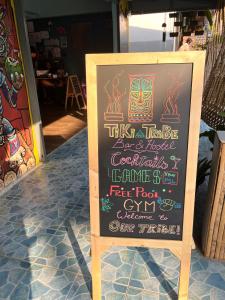 Tiki Tribe
Bar & Hostel
Cocktails
GAMES
FREE POOL
GYM
Welcome to
OUR TRIBE!